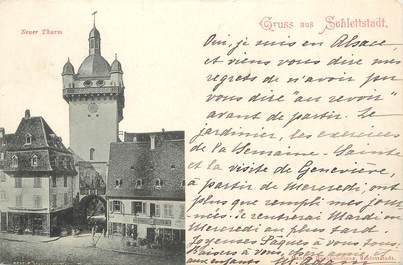 Neuer Thurm
Gruss aus Schlettstadt.
Oui, je suis en Alsace
et viens vous dire mes
regrets de n'avoir pu
vous dire "au revoir"
avant de partir. Le
jardinier, les exercices
de la Semaine-Sainte
et la visite de Geneviève,
à partir de Mercredi, ont
plus que rempli mes jour
nées. Je rentrerai Mardi ou
Mercredi au plus tard
Joyeuses Pâques à vous tous.
Baisers à vous
aux enfants
Schlettstadt.